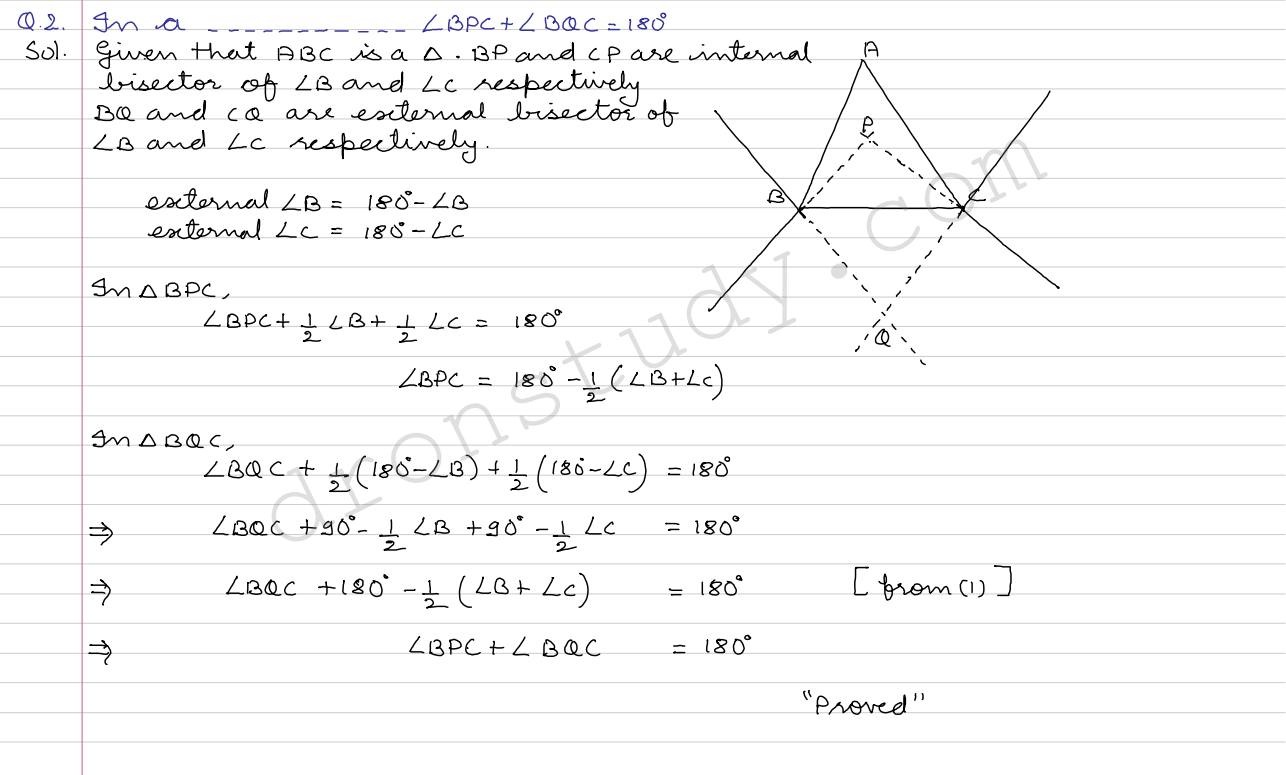 Q.2. In a ------------ ∠BPC+∠BQC=180°
Sol. Given that ABC is a Δ. BP and CP are internal
bisector of ∠B and ∠C respectively
BQ and CQ are external bisector of
∠B and ∠C respectively.
A
P
B
C
Q
external ∠B = 180°-∠B
external ∠C = 180°-∠C
In Δ BPC,
∠BPC + 1/2 ∠B + 1/2 ∠C = 180°
∠BPC = 180° - 1/2 (∠B+∠C)
In Δ BQC,
∠BQC + 1/2 (180°-∠B) + 1/2 (180°-∠C) = 180°
⇒ ∠BQC + 90° - 1/2 ∠B + 90° - 1/2 ∠C = 180°
⇒ ∠BQC + 180° - 1/2 (∠B + ∠C) = 180° [from (1)]
⇒ ∠BPC + ∠BQC = 180°
"Proved"
dronstudy.com